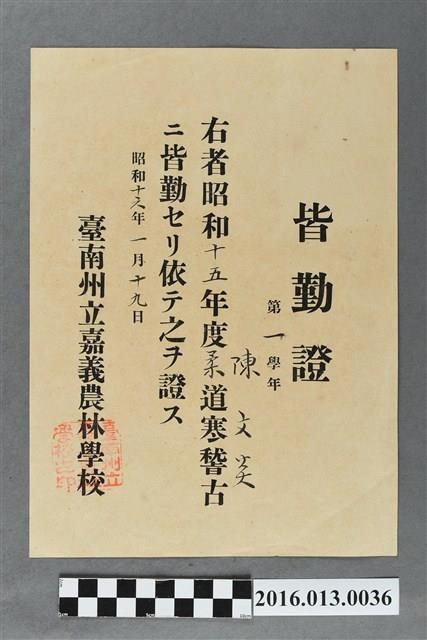 皆勤證
第一學年
陳文英
右者昭和十五年度柔道寒稽古
ニ皆勤セリ依テ之ヲ證ス
昭和十六年一月十九日
臺南州立嘉義農林學校
2016.013.0036